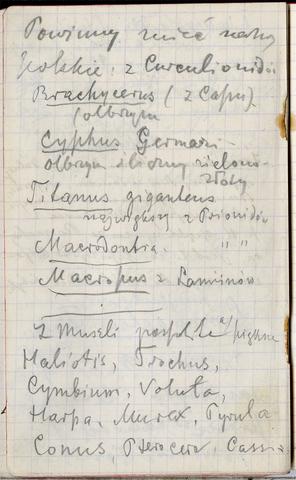 Powinny mieć nazwy
polskie: z Curculionidów
Brachycerus (z Capu)
olbrzym
Cyphus Germari -
olbrzym śliczny zielono-
złoty
Titanus giganteus
największy z Prionidów
Macrodontia " "
Macropus z Lamiinów
Z muszli pospolite a piękne
Haliotis, Trochus,
Cymbium, Voluta,
Harpa, Murex, Pyrula
Conus, Pterocer, Cassis